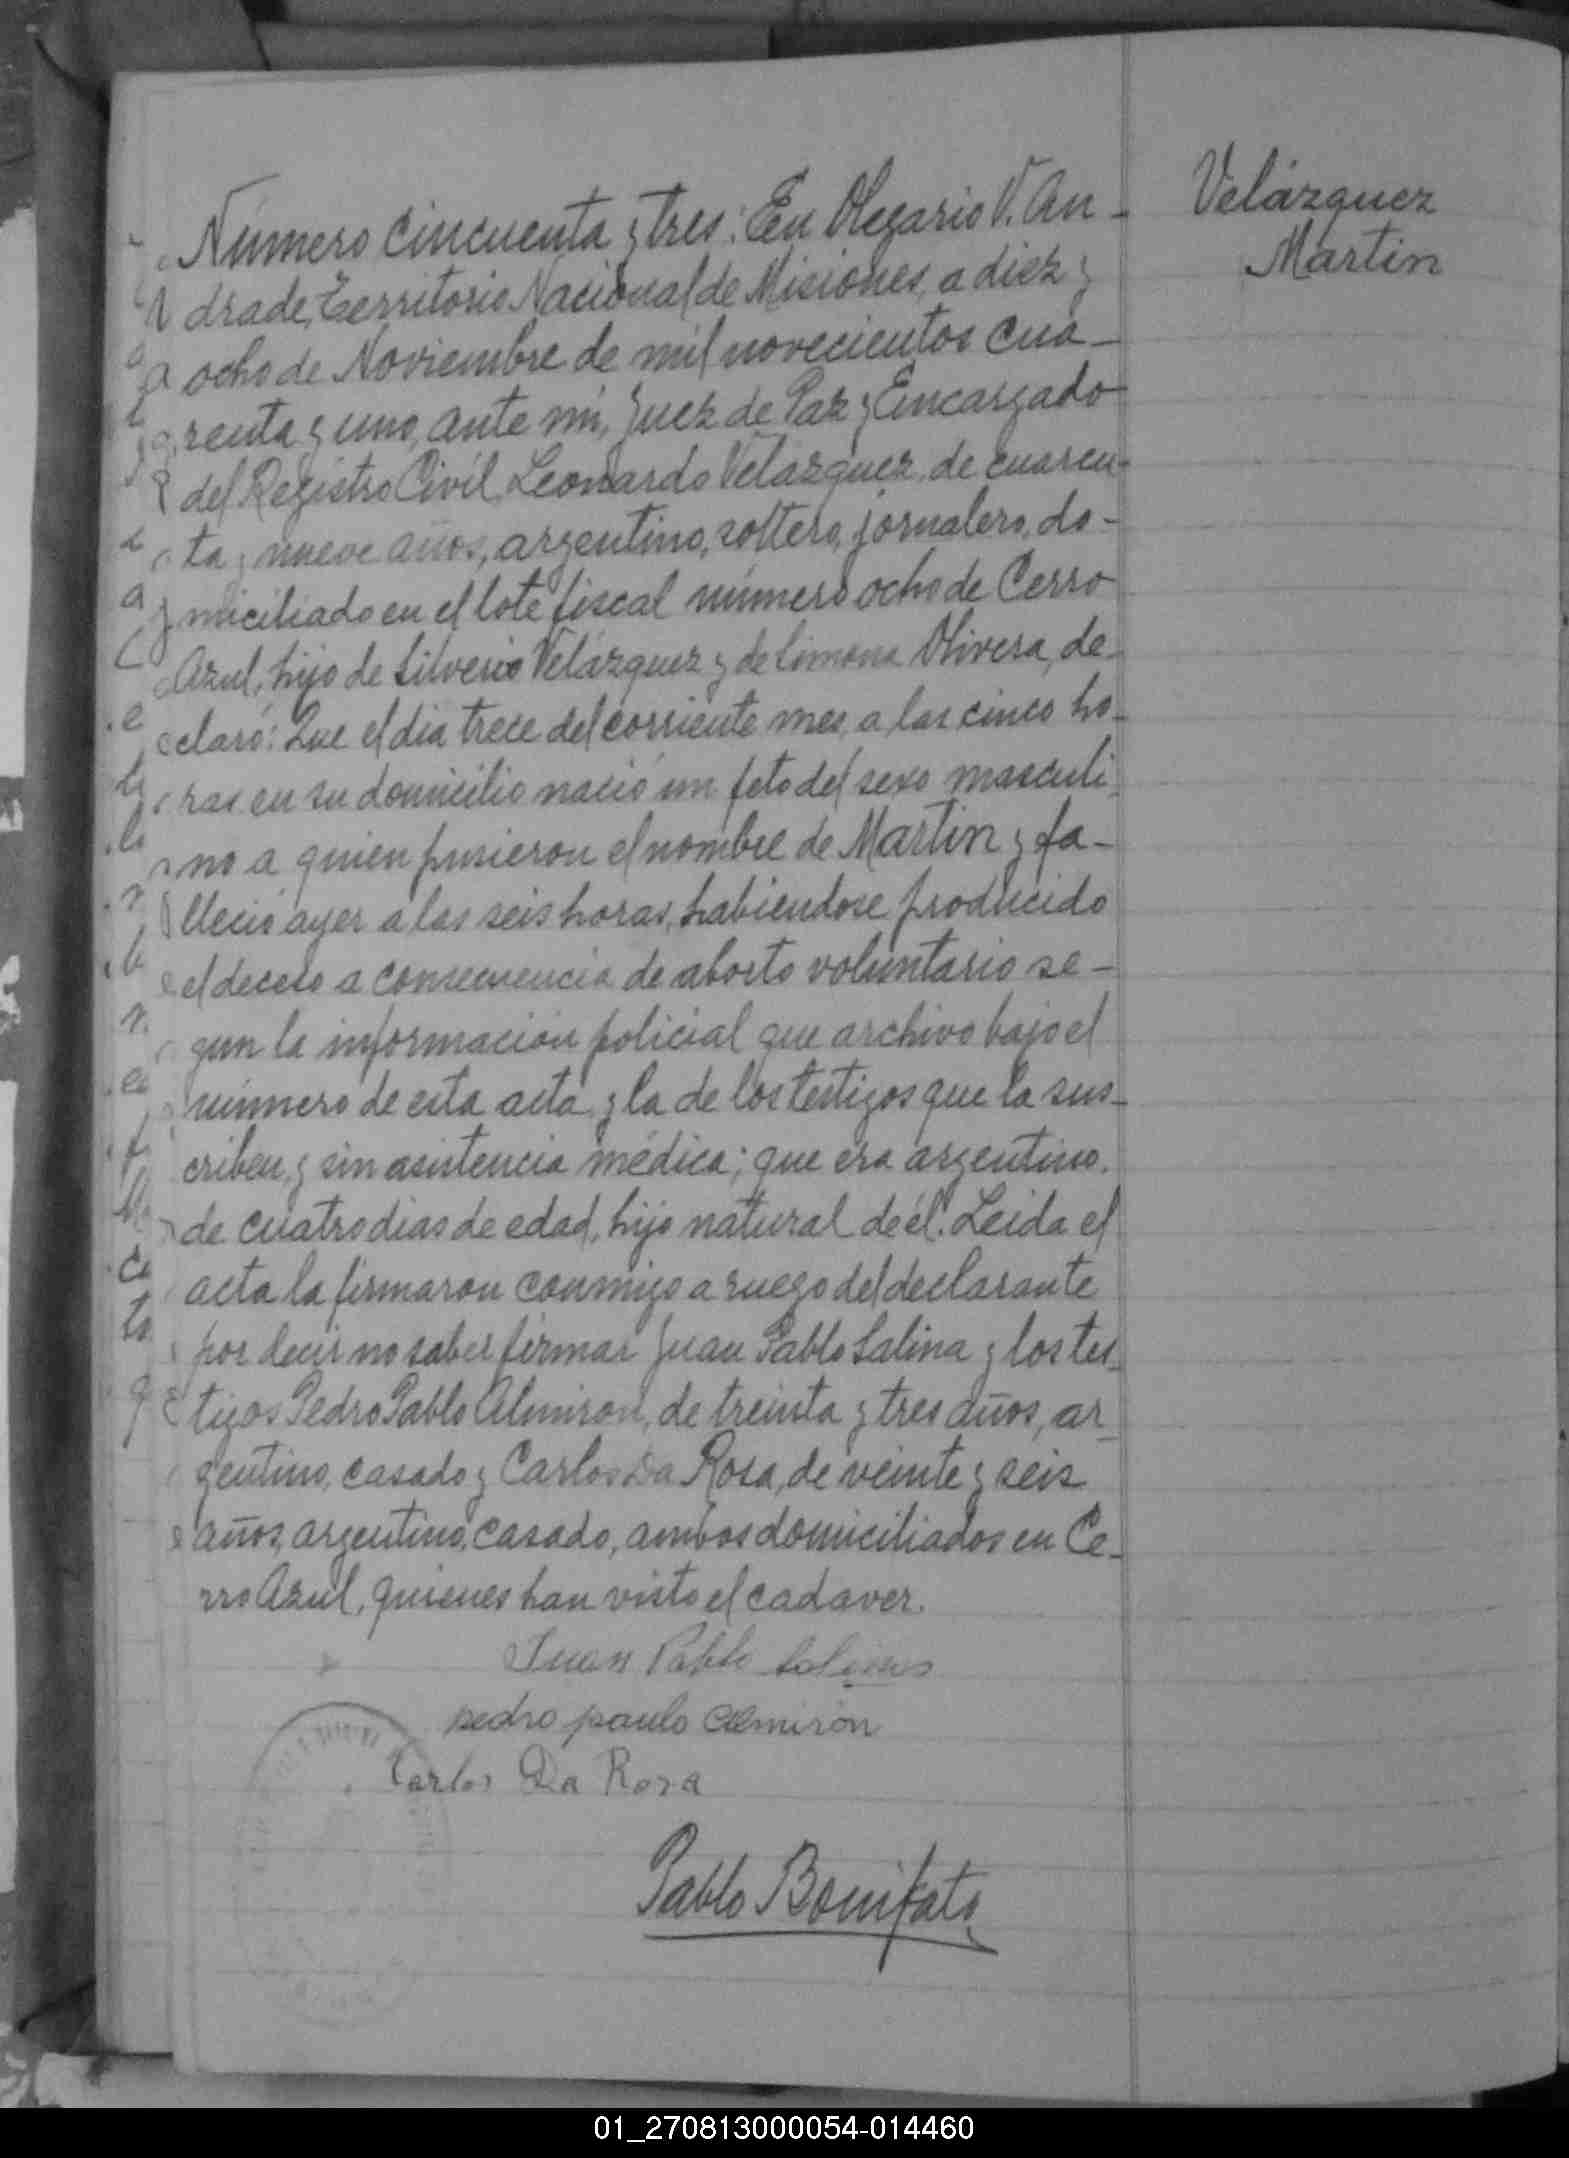 Número cincuenta y tres: En Olegario V. An-
drade, Territorio Nacional de Misiones, a diez y
ocho de Noviembre de mil novecientos cua-
renta y uno, ante mí, Juez de Paz y Encargado
del Registro Civil, Leonardo Velázquez, de cuaren-
ta y nueve años, argentino, soltero, jornalero, do-
miciliado en el lote fiscal número ocho de Cerro
Azul, hijo de Silverio Velázquez y de Simona Olivera, de-
claró: Que el dia trece del corriente mes, a las cinco ho-
ras en su domicilio nació un feto del sexo masculi-
no a quien pusieron el nombre de Martin y fa-
lleció ayer a las seis horas, habiendose producido
el deceso a consecuencia de aborto voluntario se-
gun la información policial que archivo bajo el
número de esta acta y la de los testigos que la sus-
criben, y sin asistencia médica; que era argentino,
de cuatro dias de edad, hijo natural de él. Leida el
acta la firmaron conmigo a ruego del declarante
por decir no saber firmar Juan Pablo Salina y los tes-
tigos Pedro Pablo Almiron, de treinta y tres años, ar-
gentino, casado y Carlos Da Rosa, de veinte y seis
años, argentino, casado, ambos domiciliados en Ce-
rro Azul, quienes han visto el cadaver.
Juan Pablo Salinas
pedro paulo Almirón
Carlos Da Rosa
Pablo Bonifato
Velázquez
Martin
01_270813000054-014460